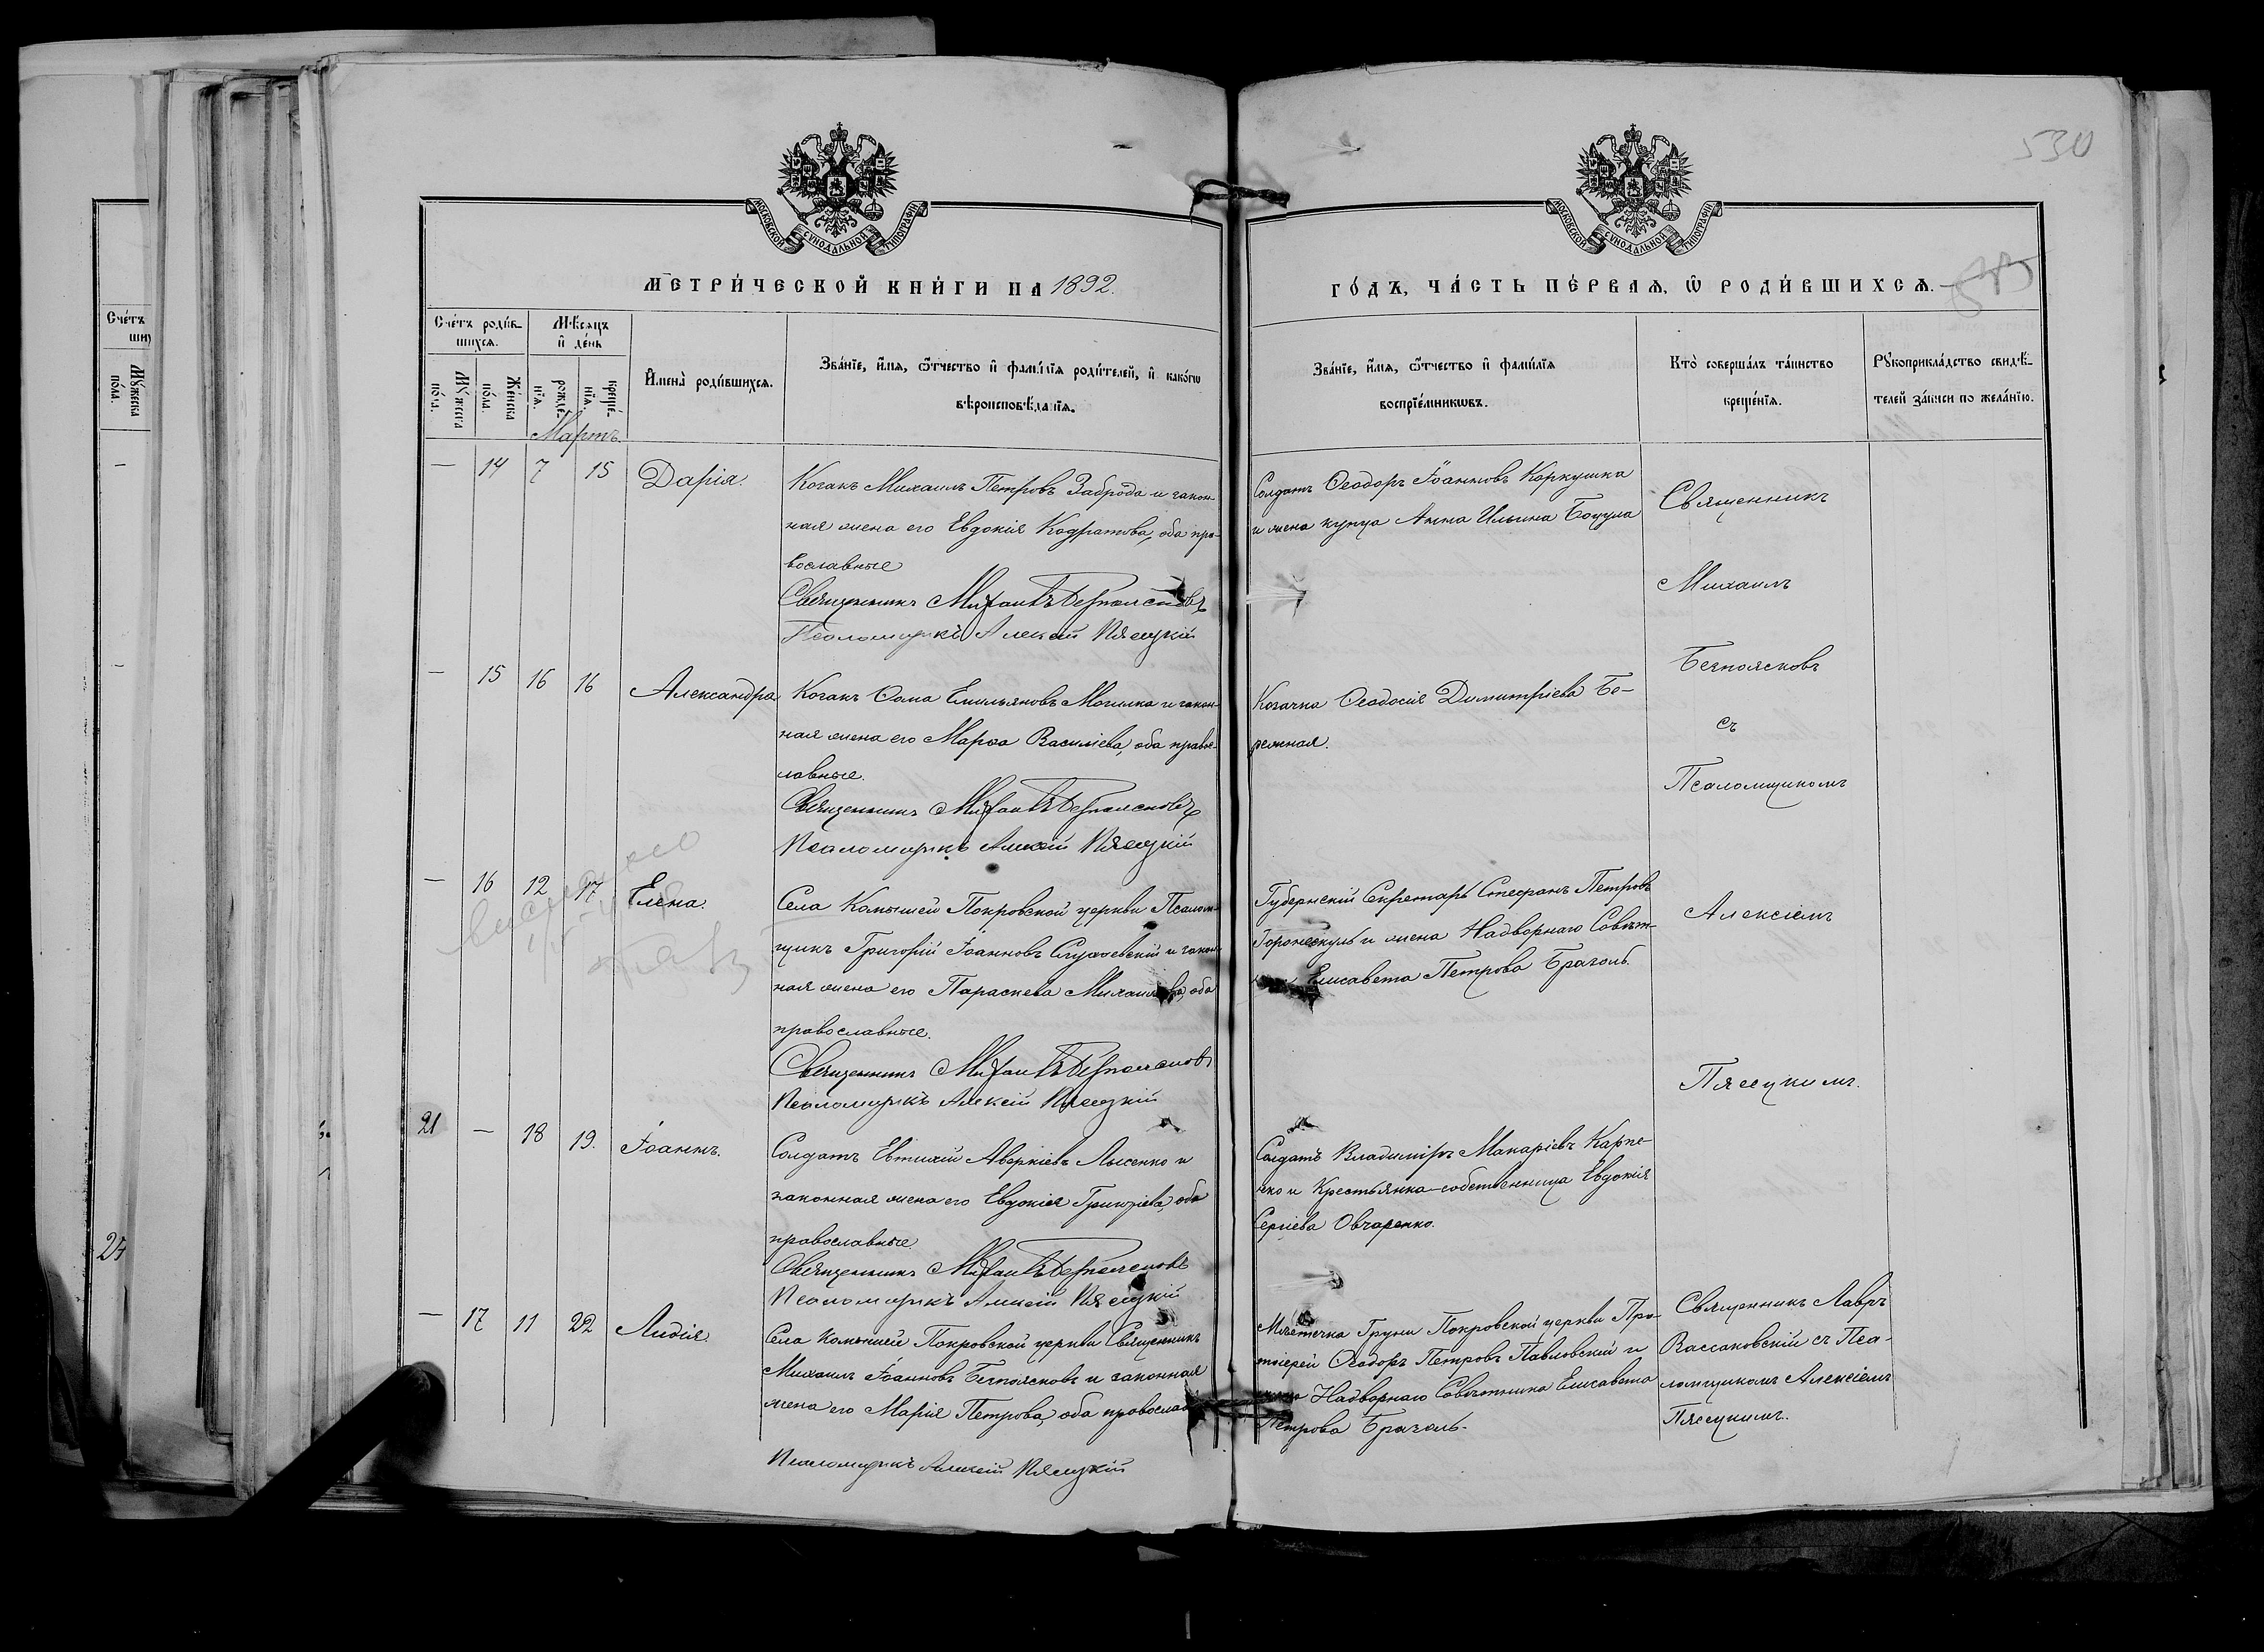 530
МОСКОВСКОЙ СѴНОДАЛЬНОЙ ТИПОГРАФІИ
МОСКОВСКОЙ СѴНОДАЛЬНОЙ ТИПОГРАФІИ
МЕТРИ́ЧЕСКОЙ КНИ́ГИ НА 1892.
ГО́ДЪ, ЧА́СТЬ ПЕ́РВАЯ, Ѡ РОДИ́ВШИХСѦ.
Сче́тъ роди́в-
шихсѧ.
Мꙋ́жеска по́ла.
Же́нска по́ла.
Мѣ́сяцъ
и де́нь
рожде́-
нїѧ.
креще́-
нїѧ.
И҆мена̀ роди́вшихсѧ.
Зва́нїе, и҆́мѧ, ѻ҆́тчество и҆ фами́лїѧ роди́телей, и҆ како́гѡ
вѣроисповѣ́данїѧ.
Зва́нїе, и҆́мѧ, ѻ҆́тчество и҆ фами́лїѧ
воспрїе́мникѡвъ.
Кто̀ соверша́лъ та́инство
креще́нїѧ.
Рꙋкоприкла́дство свидѣ́-
телей за́писи по жела́нїю.
Мартъ.
— 14 7 15 Дарія.
Козакъ Михаилъ Петровъ Заброда и закон-
ная жена его Евдокія Кодратова, оба пра-
вославные
Священникъ Михаилъ Безпоясковъ
Псаломщикъ Алексій Пясецкій
Солдатъ Ѳеодоръ Іоанновъ Коркушка
и жена купца Анна Ильина Боцула
Священникъ
Михаилъ
Безпоясковъ
съ
Псаломщикомъ
Алексіемъ
Пясецкимъ.
— 15 16 16 Александра
Козакъ Ѳома Емильяновъ Могилка и закон-
ная жена его Марѳа Василіева, оба право-
лавные.
Священникъ Михаилъ Безпоясковъ
Псаломщикъ Алексій Пясецкій
Козачка Ѳеодосія Димитріева Бе-
режная.
— 16 12 17 Елена.
Села Комышей Покровской церкви Псалом-
щикъ Григорій Іоанновъ Слухоевскій и закон-
ная жена его Параскева Михаилова, оба
православные.
Священникъ Михаилъ Безпоясковъ
Псаломщикъ Алексій Пясецкій
Губернскій Секретарь Стефанъ Петровъ
и жена Надворнаго Совѣт-
Елисавета Петрова Брагаль.
21 — 18 19. Іоаннъ.
Солдатъ Евтихій Аверкіевъ Лысенко и
законная жена его Евдокія Григоріева, оба
православные.
Священникъ Михаилъ Безпоясковъ
Псаломщикъ Алексій Пясецкій
Солдатъ Владиміръ Макаріевъ Карпе-
нко и Крестьянка-собственница Евдокія
Сергіева Овчаренко.
— 17 11 22 Лидія.
Села Комышей Покровской церкви Священникъ
Михаилъ Іоанновъ Безпоясковъ и законная
жена его Марія Петрова, оба православ
Псаломщикъ Алексій Пясецкій
Мѣстечка Груни Покровской церкви Про-
тоіерей Ѳеодоръ Петровъ Павловскій и
жена Надворнаго Совѣтника Елисавета
Петрова Брагаль.
Священникъ Лавръ
Вассаковскій съ Пса-
ломщикомъ Алексіемъ
Пясецкимъ.
Сче́тъ
Мꙋ́жеска
по́ла.
24